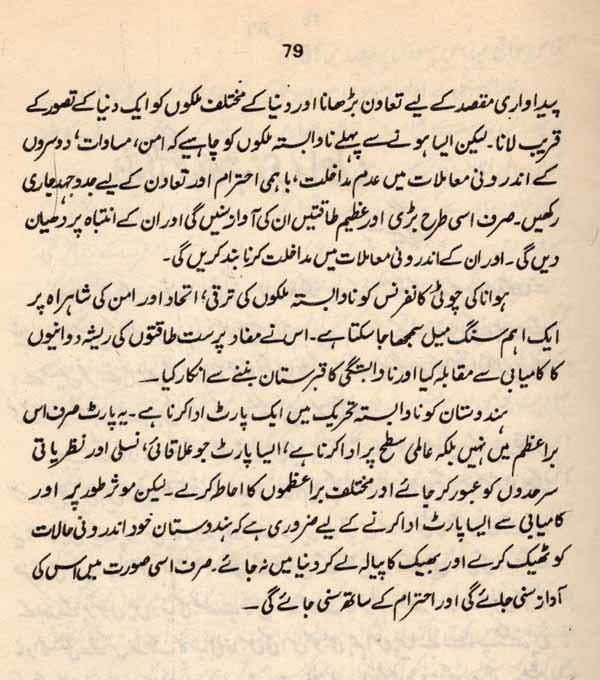 79
پیداواری مقصد کے لیے تعاون بڑھانا اور دنیا کے مختلف ملکوں کو ایک دنیا کے تصور کے
قریب لانا۔ لیکن ایسا ہونے سے پہلے ناوابستہ ملکوں کو چاہیے کہ امن، مساوات، دوسروں
کے اندرونی معاملات میں عدم مداخلت، باہمی احترام اور تعاون کے لیے جدوجہد جاری
رکھیں۔ صرف اسی طرح بڑی اور عظیم طاقتیں ان کی آواز سنیں گی اور ان کے انتباہ پر دھیان
دیں گی۔ اور ان کے اندرونی معاملات میں مداخلت کرنا بند کریں گی۔
ہوانا کی چوٹی کانفرنس کو ناوابستہ ملکوں کی ترقی، اتحاد اور امن کی شاہراہ پر
ایک اہم سنگ میل سمجھا جا سکتا ہے۔ اس نے مفاد پرست طاقتوں کی ریشہ دوانیوں
کا کامیابی سے مقابلہ کیا اور ناوابستگی کا قبرستان بننے سے انکار کیا۔
ہندوستان کو ناوابستہ تحریک میں ایک پارٹ ادا کرنا ہے۔ یہ پارٹ صرف اس
براعظم میں نہیں بلکہ عالمی سطح پر ادا کرنا ہے، ایسا پارٹ جو علاقائی، نسلی اور نظریاتی
سرحدوں کو عبور کر جائے اور مختلف براعظموں کا احاطہ کرلے۔ لیکن موثر طور پر اور
کامیابی سے ایسا پارٹ ادا کرنے کے لیے ضروری ہے کہ ہندوستان خود اندرونی حالات
کو ٹھیک کرلے اور بھیک کا پیالہ لے کر دنیا میں نہ جائے۔ صرف اسی صورت میں اس کی
آواز سنی جائے گی اور احترام کے ساتھ سنی جائے گی۔